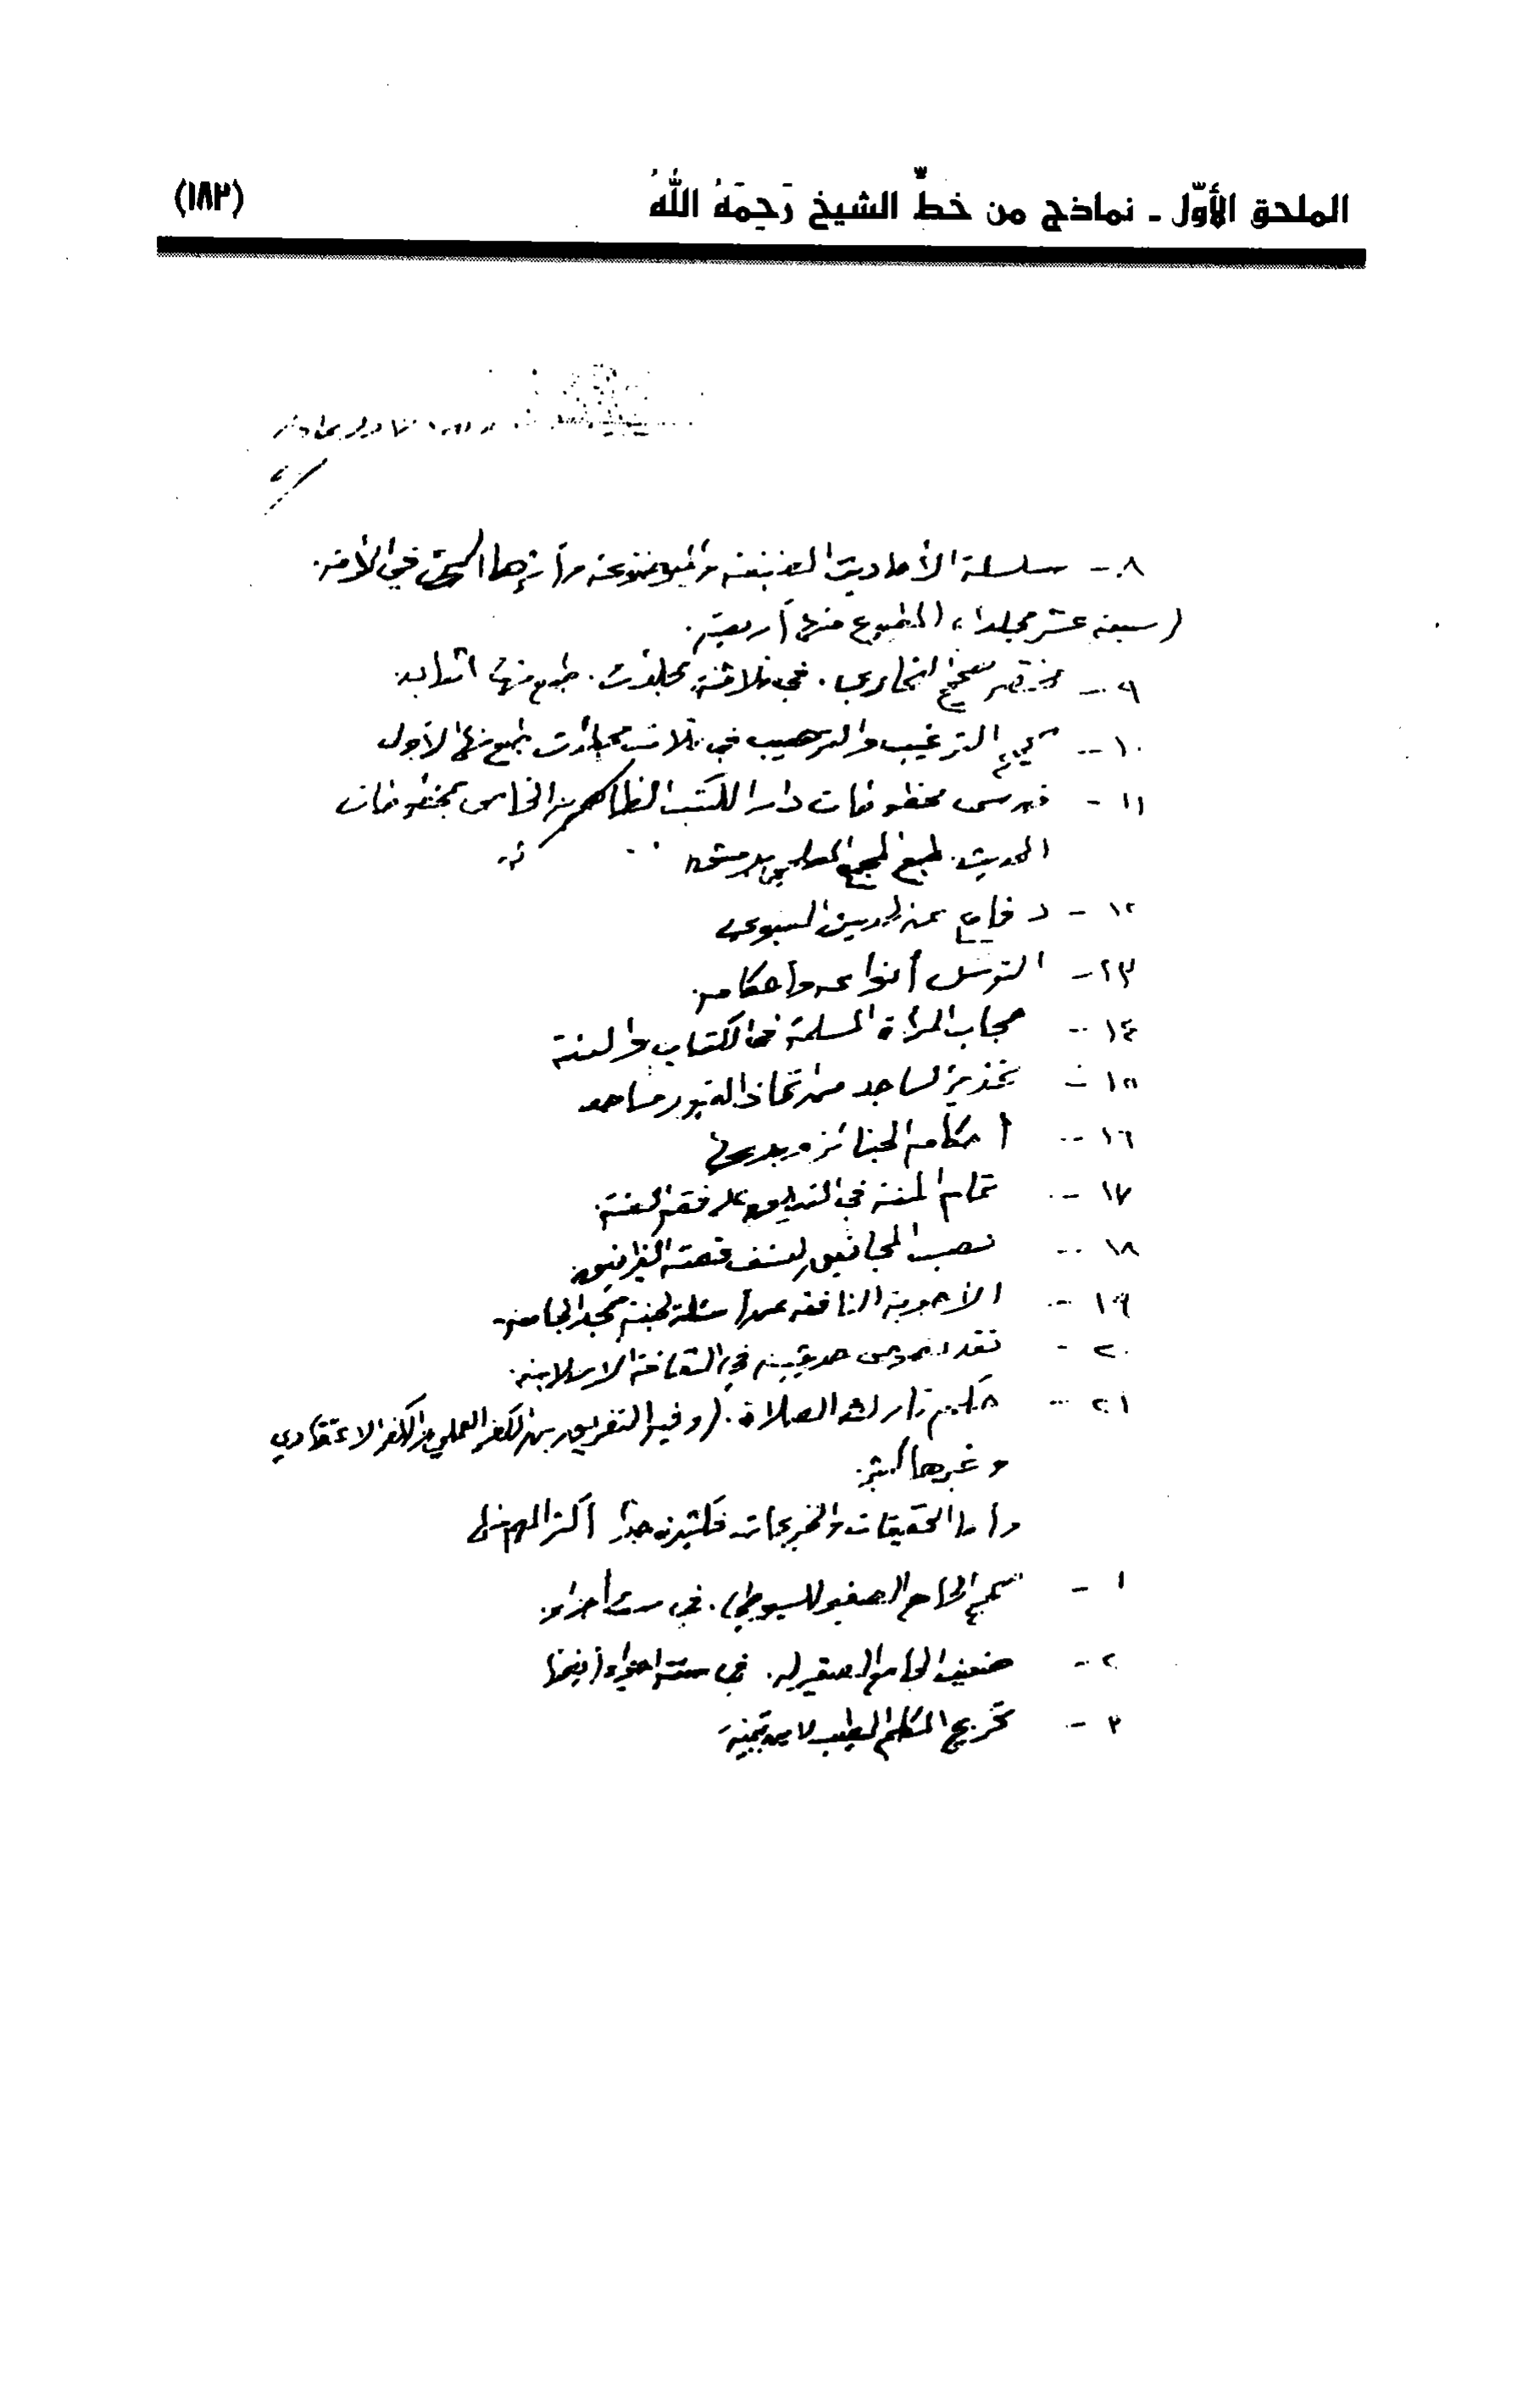 الملحق الأوّل - نماذج من خطِّ الشيخ رَحِمَهُ اللهُ (١٨٣)
٨ - سلسلة الأحاديث الضعيفة والموضوعة وأثرها السيئ في الأمة.
(سبعة عشر مجلدا، المطبوع منها أربعة.
٩ - مختصر صحيح البخاري. في ثلاثة مجلدات. طبع منها
١٠ - صحيح الترغيب والترهيب في ثلاث مجلدات طبع منها الأول
١١ - فهرس مخطوطات دار الكتب الظاهرية الخاص بمخطوطات
الحديث. طبع المجمع العلمي بدمشق
١٢ - دفاع عن الحديث النبوي
١٣ - التوسل أنواعه وأحكامه
١٤ - حجاب المرأة المسلمة في الكتاب والسنة
١٥ - تحذير الساجد من اتخاذ القبور مساجد
١٦ - أحكام الجنائز وبدعها
١٧ - تمام المنة في التعليق على فقه السنة
١٨ - نصب المجانيق لنسف قصة الغرانيق
١٩ - الأجوبة النافعة عن أسئلة لجنة مسجد الجامعة
٢٠ - نقد نصوص حديثية في الثقافة الاسلامية
٢١ - حكم تارك الصلاة. (وفيه التفريق بين الكفر العملي والكفر الاعتقادي
وغيرها كثير
وأما التحقيقات والتخريجات فكثيرة جداً أكثر المهم منها
١ - صحيح الجامع الصغير للسيوطي. في ستة أجزاء
٢ - ضعيف الجامع الصغير له. في ستة أجزاء أيضا
٣ - تخريج الكلم الطيب لابن تيمية